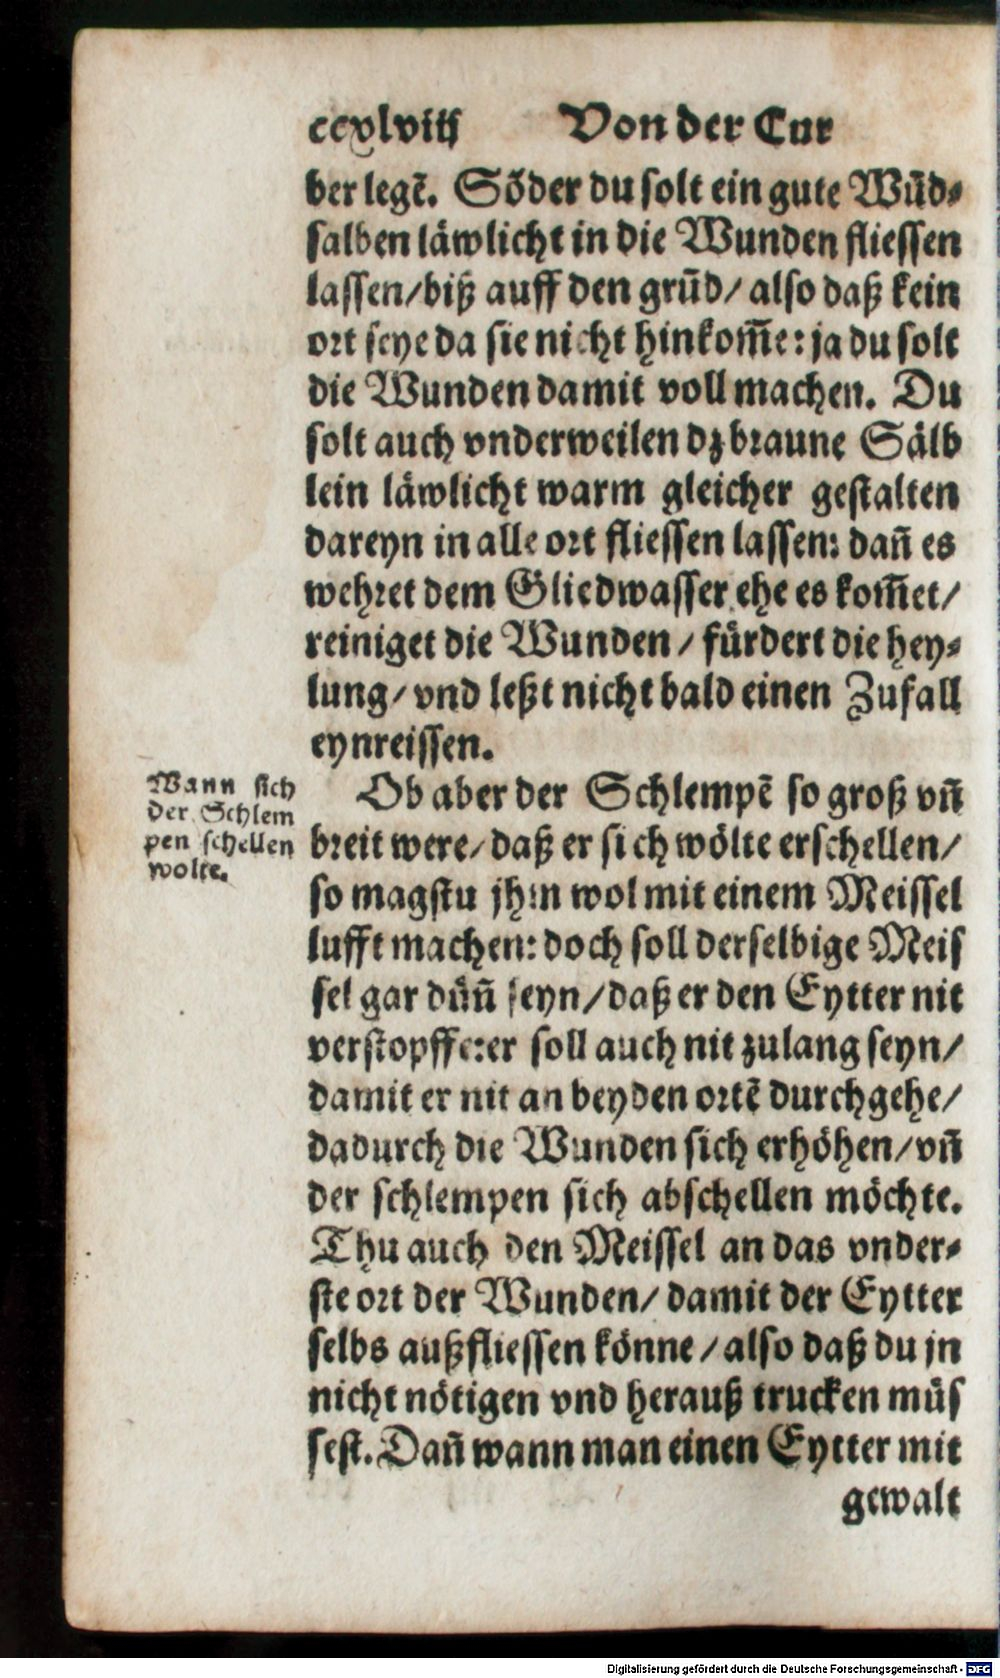 ccxlviij Von der Cur
ber legẽ. Sõder du solt ein gute Wũd⸗
salben läwlicht in die Wunden fliessen
lassen/biß auff den grũd/ also daß kein
ort seye da sie nicht hinkom̃e: ja du solt
die Wunden damit voll machen. Du
solt auch vnderweilen dz braune Sälb
lein läwlicht warm gleicher gestalten
dareyn in alle ort fliessen lassen: dañ es
wehret dem Gliedwasser ehe es kom̃et/
reiniget die Wunden / fürdert die hey⸗
lung/ vnd leßt nicht bald einen Zufall
eynreissen.
Wann sich
der Schlem
pen schellen
wolte.
Ob aber der Schlempẽ so groß vñ
breit were/ daß er sich wölte erschellen/
so magstu jhm wol mit einem Meissel
lufft machen: doch soll derselbige Meis
sel gar düñ seyn/daß er den Eytter nit
verstopffe: er soll auch nit zulang seyn/
damit er nit an beyden ortẽ durchgehe/
dadurch die Wunden sich erhöhen/vñ
der schlempen sich abschellen möchte.
Thu auch den Meissel an das vnder⸗
ste ort der Wunden/ damit der Eytter
selbs außfliessen könne / also daß du jn
nicht nötigen vnd herauß trucken müs
sest. Dañ wann man einen Eytter mit
gewalt
Digitalisierung gefördert durch die Deutsche Forschungsgemeinschaft - DFG